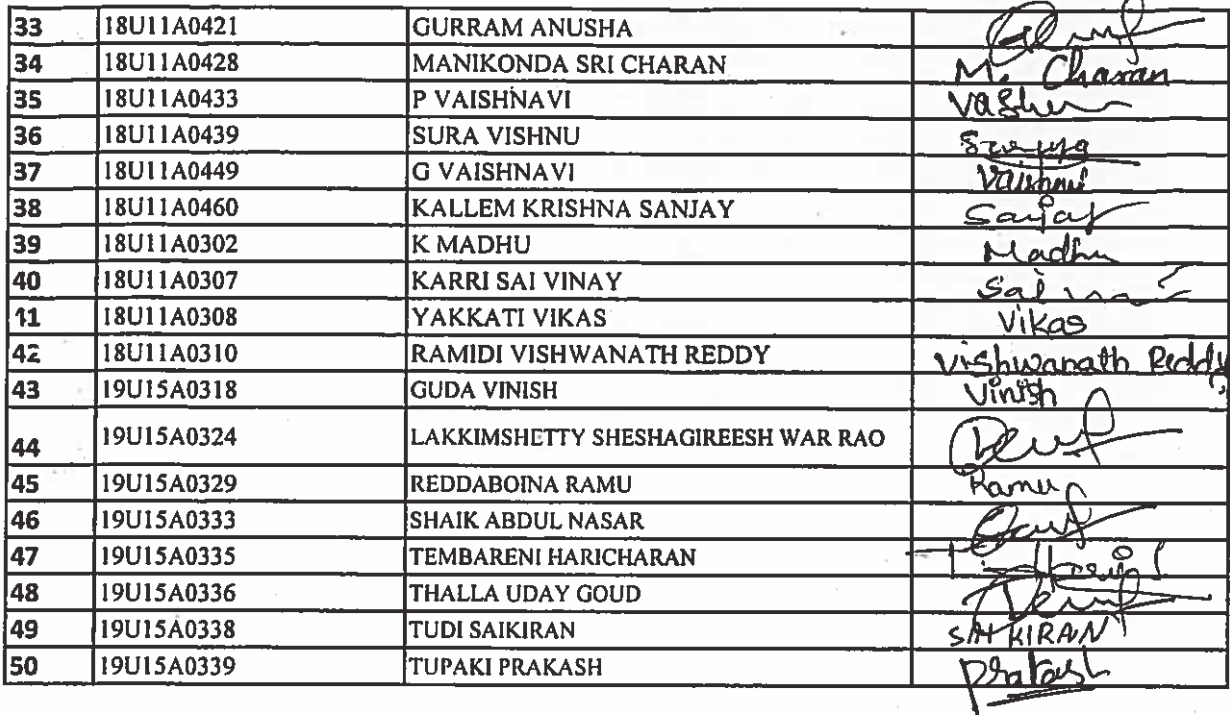 33 18U11A0421 GURRAM ANUSHA
34 18U11A0428 MANIKONDA SRI CHARAN M. Charan
35 18U11A0433 P VAISHNAVI
36 18U11A0439 SURA VISHNU
37 18U11A0449 G VAISHNAVI Vaishnavi
38 18U11A0460 KALLEM KRISHNA SANJAY Sanjay
39 18U11A0302 K MADHU Madhu
40 18U11A0307 KARRI SAI VINAY Sai
41 18U11A0308 YAKKATI VIKAS Vikas
42 18U11A0310 RAMIDI VISHWANATH REDDY Vishwanath Reddy
43 19U15A0318 GUDA VINISH Vinish
44 19U15A0324 LAKKIMSHETTY SHESHAGIREESH WAR RAO
45 19U15A0329 REDDABOINA RAMU Ramu
46 19U15A0333 SHAIK ABDUL NASAR
47 19U15A0335 TEMBARENI HARICHARAN
48 19U15A0336 THALLA UDAY GOUD
49 19U15A0338 TUDI SAIKIRAN SAI KIRAN
50 19U15A0339 TUPAKI PRAKASH Prakash